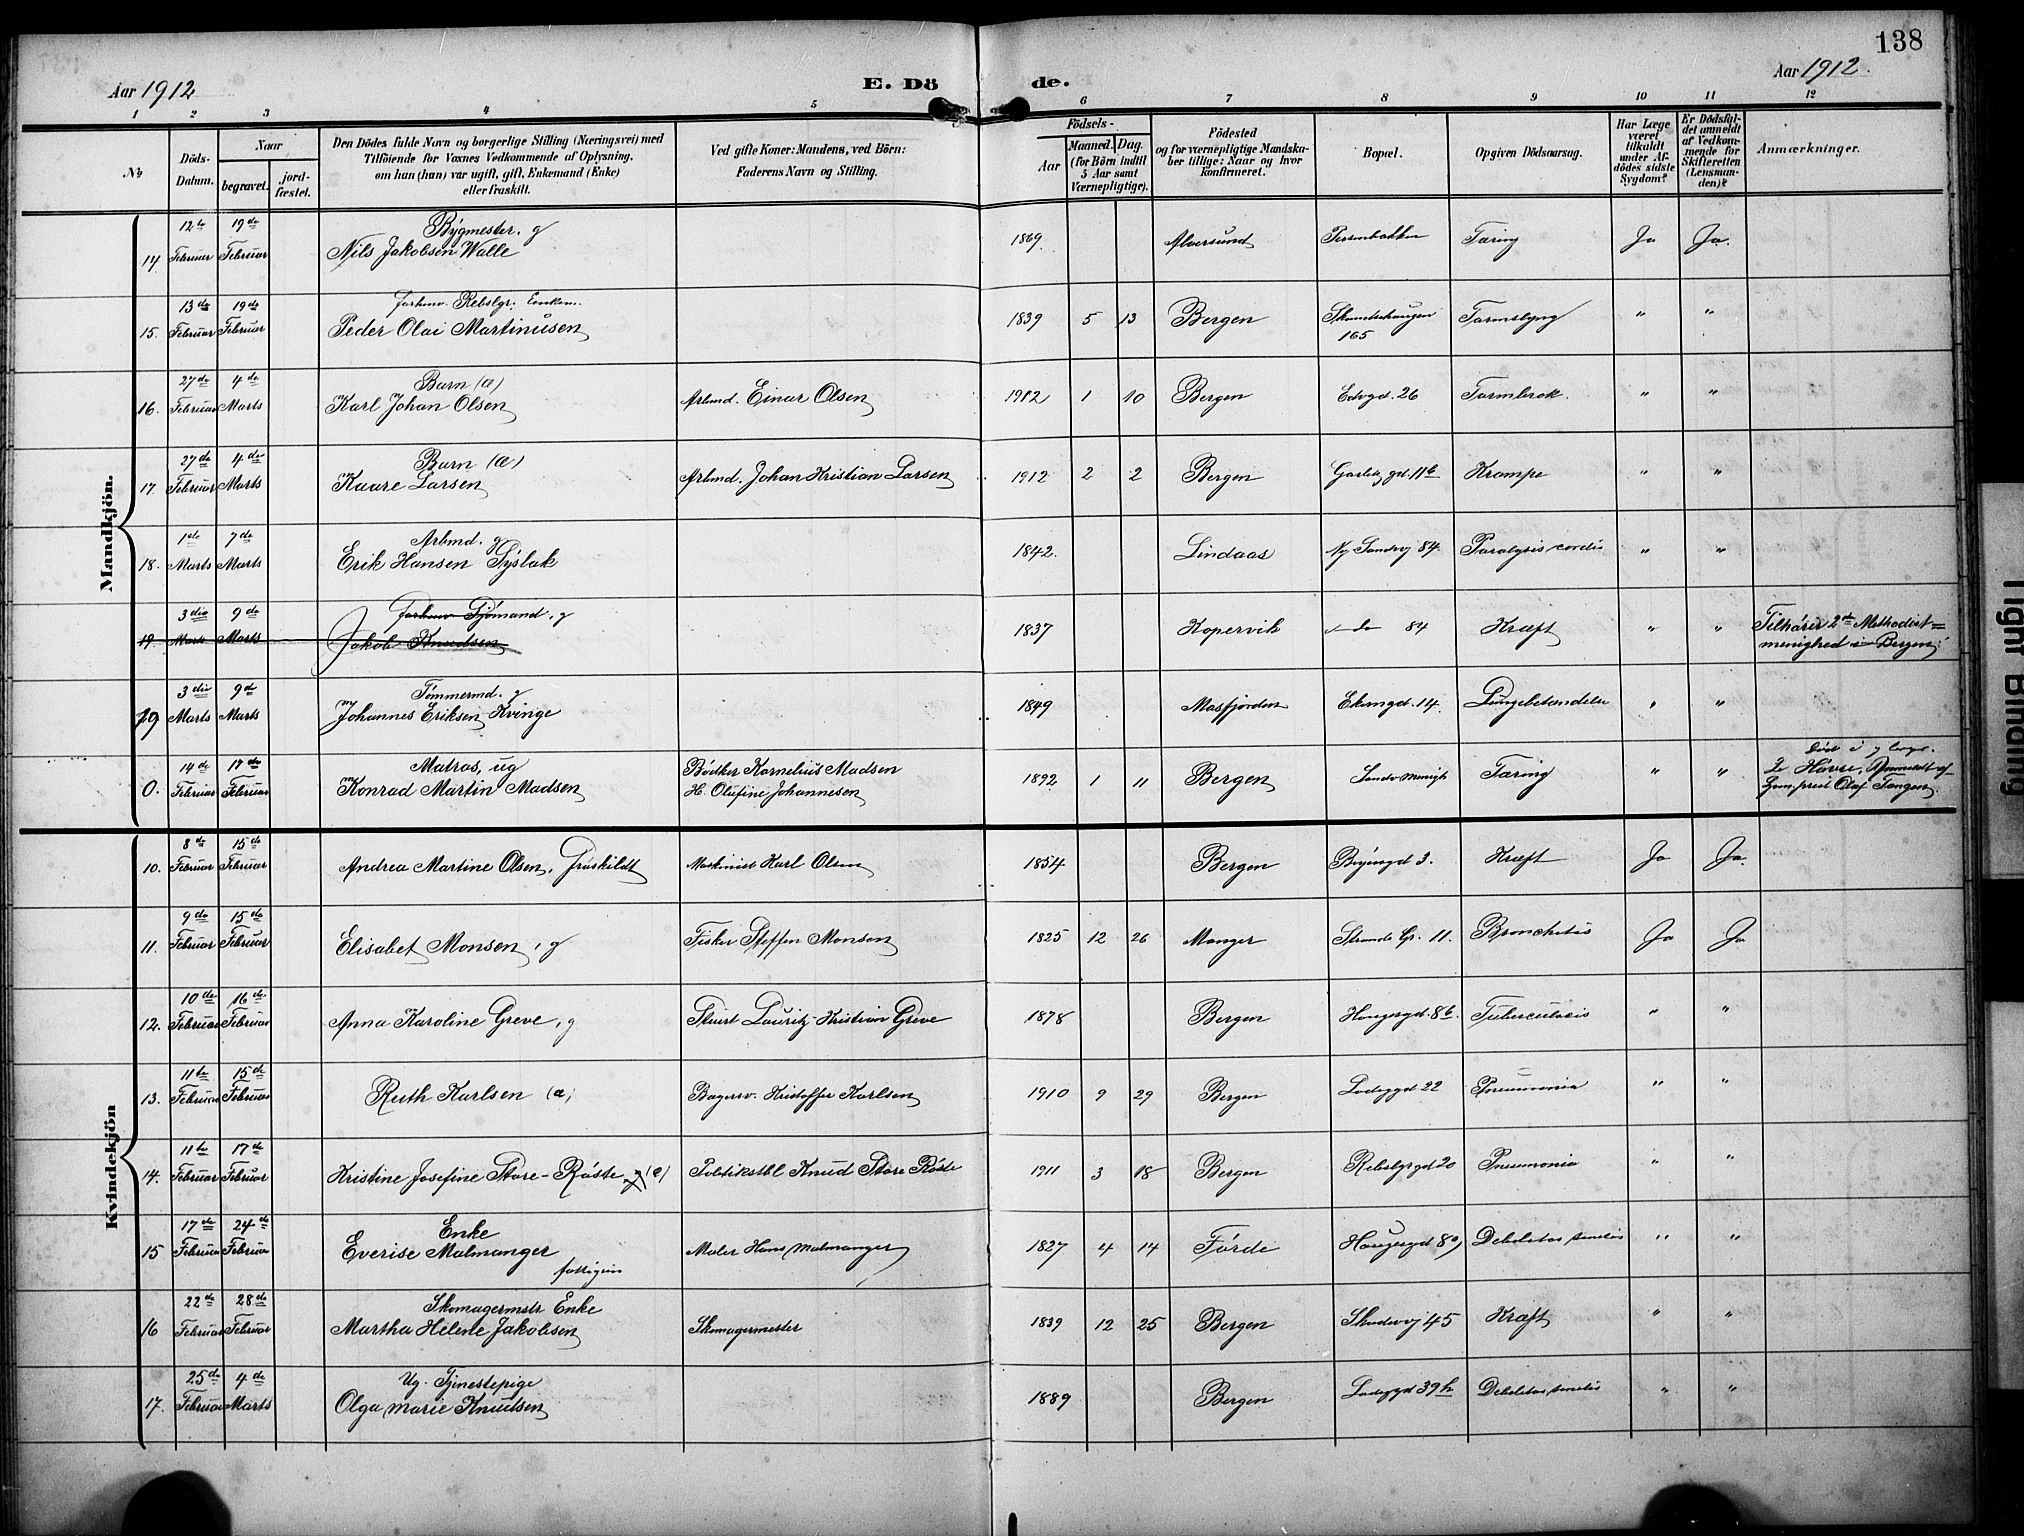 138
Aar 1912
E. Dö
de.
Aar 1912.
1 2 3 4 5 6 7 8 9 10 11 12
No
Döds-Datum.
Naar
begravet.
jord-fæstet.
Den Dödes fulde Navn og borgerlige Stilling (Næringsvei) med
Tilföiende for Voxnes Vedkommende af Oplysning,
om han (hun) var ugift, gift, Enkemand (Enke)
eller fraskilt.
Ved gifte Koner: Mandens, ved Börn:
Faderens Navn og Stilling.
Födsels-
Aar
Maaned. Dag.
(for Börn indtil
5 Aar samt
Værnepligtige).
Födested
og for værnepligtige Mandska-
ber tillige: Naar og hvor
konfirmeret.
Bopæl.
Opgiven Dödsaarsag.
Har Læge
været
tilkaldt
under Af-
dödes sidste
Sygdom?
Er Dödsfal-
det anmeldt
af Vedkom-
mende for
Skifteretten
(Lensman-
den)?
Anmærkninger.
Mandkjön.
12te 19de Bygmester. g
14 Februar Februar Nils Jakobsen Walle 1869 Alversund Tæring Ja Ja.
13de 19de Forhenv. Rebslgr. Enkem.
15. Februar Februar Peder Olai Martinusen 1839 5 13 Bergen 165 " "
27de 4de Barn (æ)
16. Februar Marts Karl Johan Olsen Arbmd. Einar Olsen 1912 1 10 Bergen 26 Tarmbrok. " "
27de 4de Barn (æ)
17. Februar Marts Kaare Larsen Arbmd. Johan Kristian Larsen 1912 2 2 Bergen Krampe " "
1ste 7de Arbmd. g
18. Marts Marts Erik Hansen Syslak 1842. Lindaas Ny Sandvv 84. Paralysis cordis " "
3die 9de Forhenv Sjømand, g
19. Marts Marts Jakob Knudssen 1837 Kopervik do 84 Kræft " " Tilhører 2den Methodist=
menighed i Bergen.
3die 9de Tömmermd. g
19 Marts Marts Johannes Eriksen Kvinge 1849 Masfjorden 14. Lungebetændelse " "
14de 17de Matros, ug Bödker Kornelius Madsen
0. Februar Februar Konrad Martin Madsen H. Olufine Johannesen 1892 1 11 Bergen Tæring " " Død i
Le Havre, Anmeldt af
Olaf Tangen.
Kvindekjön
8de 15de
10. Februar Februar Andrea Martine Olsen, Fraskildt Maskinist Karl Olsen 1854 Bergen 3. Kræft Ja Ja.
9de 15de
11. Februar Februar Elisabet Monsen, g Fisker Steffen Monsen 1825 12 26 Manger Strands Gr. 11. Bronchitis Ja Ja
10de 16de
12. Februar Februar Anna Karoline Greve, g Stuert Lauritz Kristian Greve 1878 Bergen Haugesgd. 8b. Tuberculosis " "
11te 15de
13. Februar Februar Ruth Karlsen (æ) Bagersv. Kristoffer Karlsen 1910 9 29 Bergen Ladegdgd 22 Pneumonia " "
11te 17de
14. Februar Februar Kristine Josefine Store-Röste (æ) Politikstbl Knud Store Röste 1911 3 18 Bergen Rebslgrgd 20 Pneumonia " "
17de 24de Enke
15 Februar Februar Everise Malmanger Maler Hans Malmanger 1827 4 14 Förde Haugesgd 8 Debilitas senilis " "
fattigem
22de 28de Skomagermstr Enke
16 Februar Februar Martha Helene Jakobsen Skomagermester 1839 12 25 Bergen 45 Kræft " "
25de 4de Ug. Tjenestepige
17. Februar Marts Olga Marie Knudsen 1889 Bergen 39 Debilitas senilis " "
Tight Binding